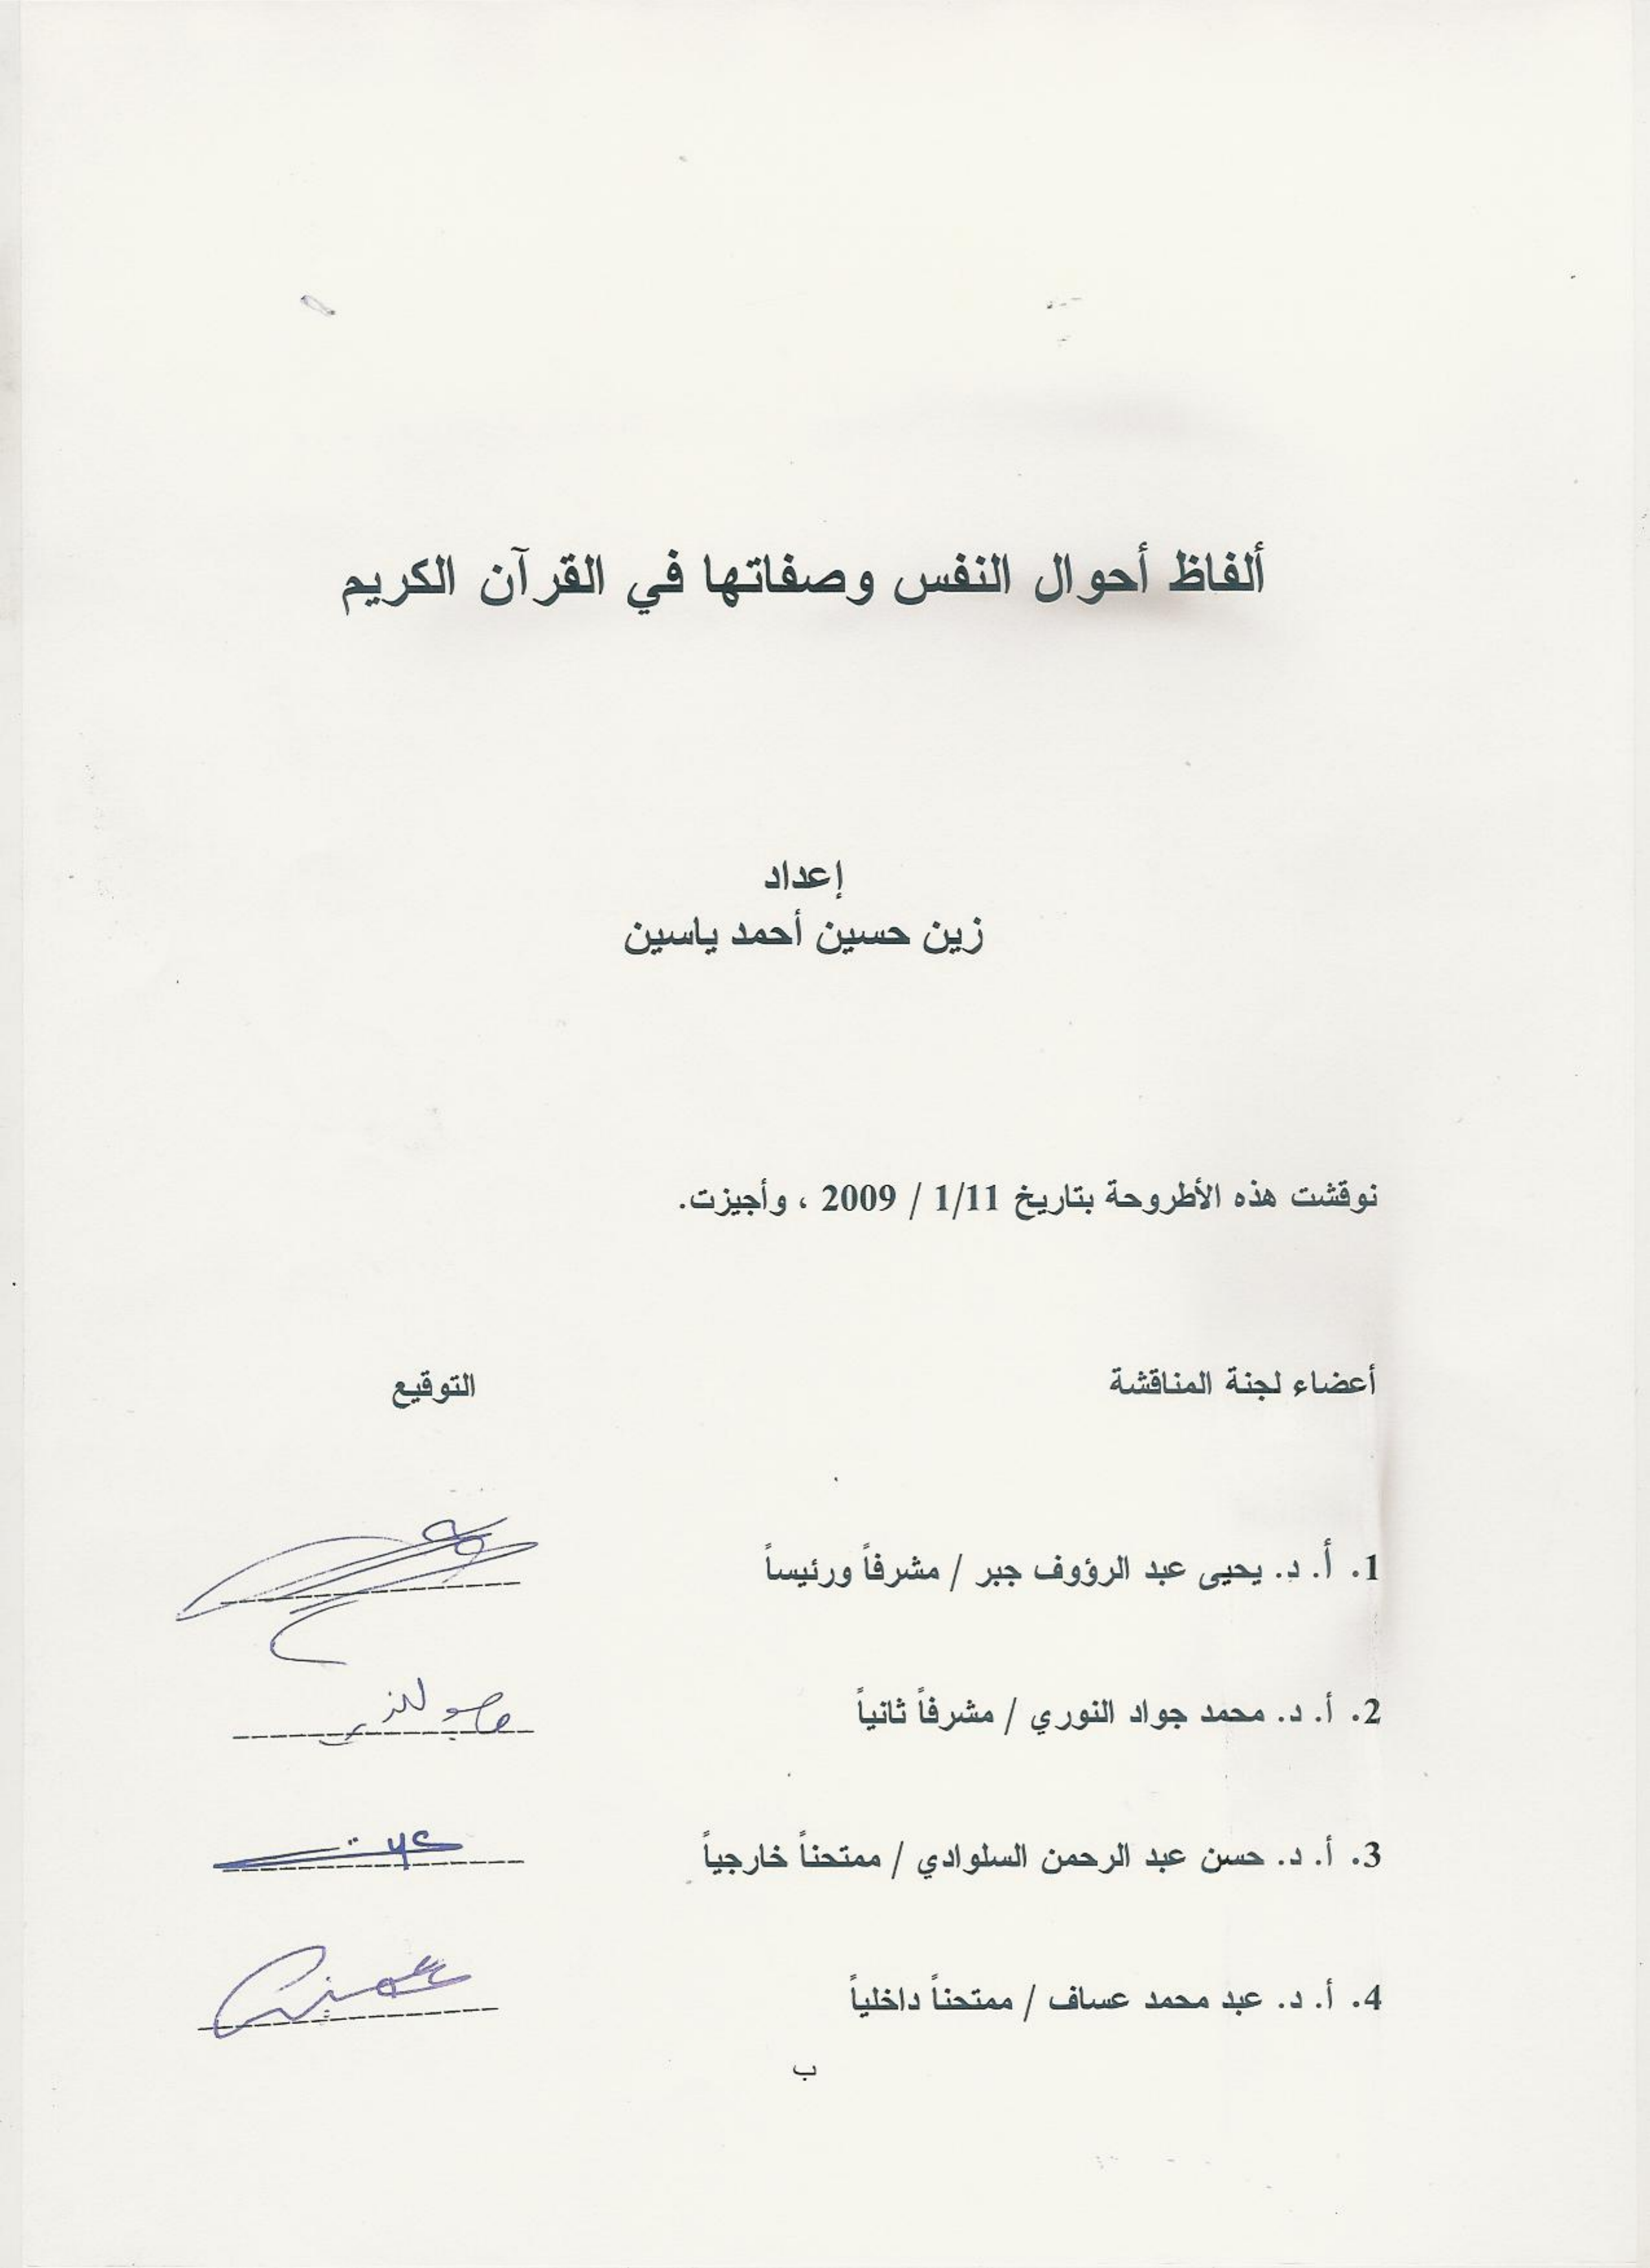 ألفاظ أحوال النفس وصفاتها في القرآن الكريم
إعداد
زين حسين أحمد ياسين
نوقشت هذه الأطروحة بتاريخ 1/11 / 2009 ، وأجيزت.
أعضاء لجنة المناقشة التوقيع
1. أ. د. يحيى عبد الرؤوف جبر / مشرفاً ورئيساً
2. أ. د. محمد جواد النوري / مشرفاً ثانياً
3. أ. د. حسن عبد الرحمن السلوادي / ممتحناً خارجياً
4. أ. د. عبد محمد عساف / ممتحناً داخلياً
ب